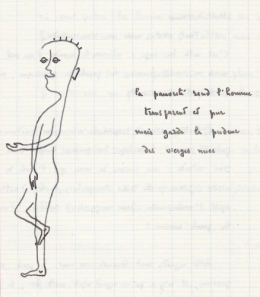 la pauvreté rend l'homme
transparent et pur
mais garde la pudeur
des vierges nues